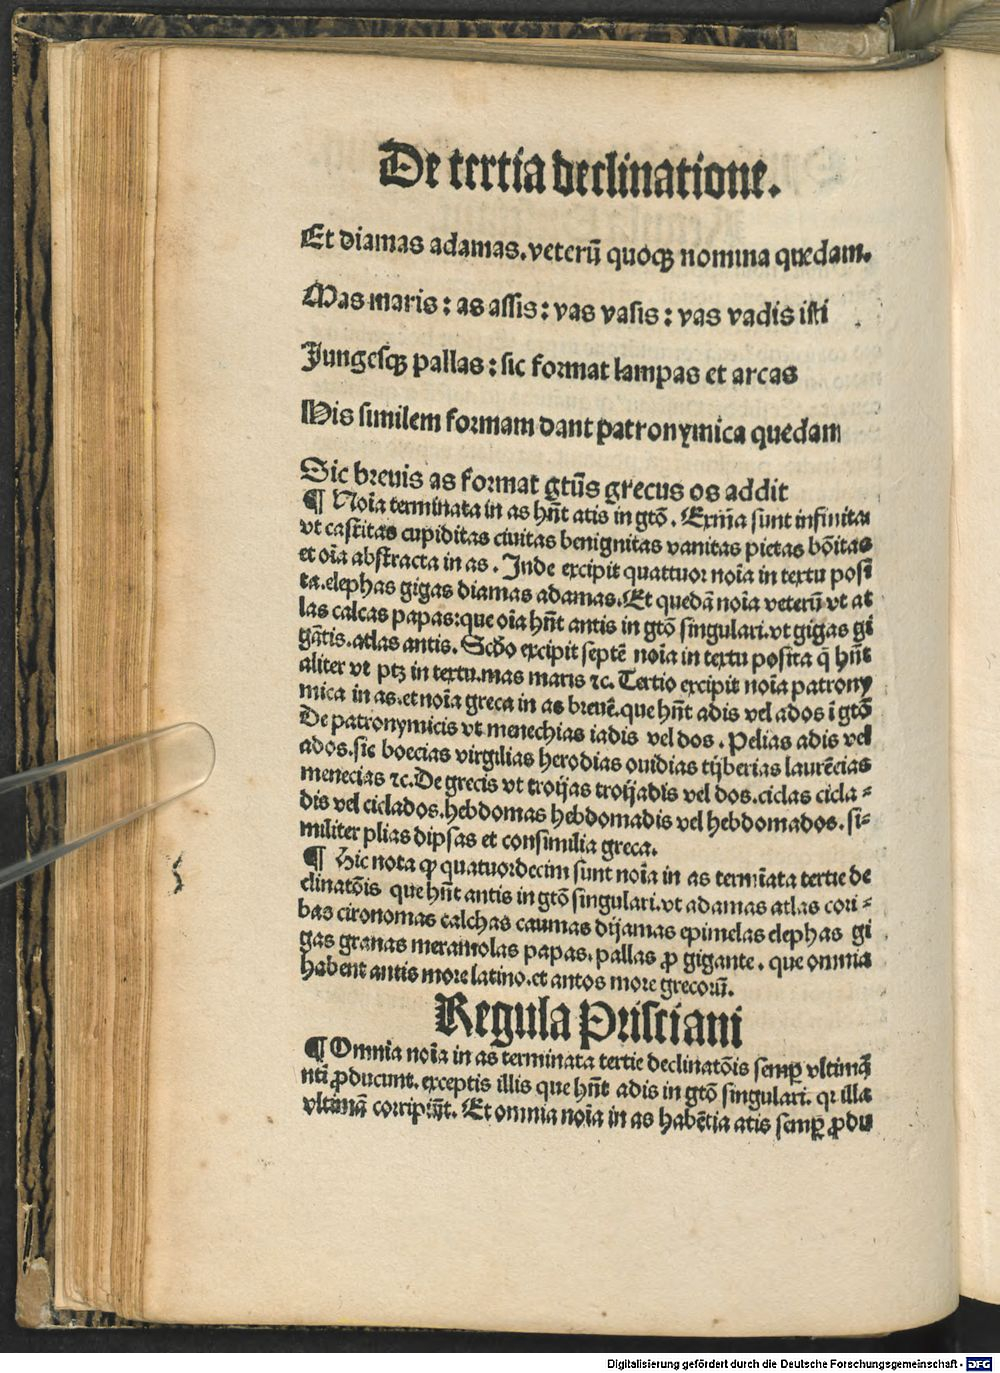 De tertia declinatione.
Et diamas adamas. veterū quoqꝫ nomina quedam.
Mas maris : as assis : vas vasis : vas vadis isti
Jungesqꝫ pallas : sic format lampas et arcas
His similem formam dant patronymica quedam
Sic breuis as format gtūs grecus os addit
¶ Noīa terminata in as hn̄t atis in gtō. Exm̄a sunt infinita
vt castitas cupiditas ciuitas benignitas vanitas pietas bōitas
et oīa abstracta in as. Inde excipit quattuor noīa in textu posi
ta. elephas gigas diamas adamas. Et quedā noīa veterū vt at
las calcas papas: que oīa hn̄t antis in gtō singulari. vt gigas gi
gātis. atlas antis. Scd̄o excipit septē noīa in textu posita q̄ hn̄t
aliter vt ptꝫ in textu. mas maris ⁊c. Tertio excipit noīa patrony
mica in as. et noīa greca in as breuē. que hn̄t adis vel ados ī gtō
De patronymicis vt menechias iadis vel dos. Pelias adis vel
ados. sic boecias virgilias herodias ouidias tijberias laurēcias
menecias ⁊c. De grecis vt troijas troijadis vel dos. ciclas cicla-
dis vel ciclados. hebdomas hebdomadis vel hebdomados. si-
militer plias dipsas et consimilia greca.
¶ Hic nota ꝙ quatuordecim sunt noīa in as termīata tertie de
clinatōis que hn̄t antis in gtō singulari. vt adamas atlas cori-
bas cironomas calchas caumas dijamas epimelas elephas gi
gas granas meramolas papas. pallas ꝓ gigante. que omnia
habent antis more latino. et antos more grecorū.
Regula Prisciani
¶ Omnia noīa in as terminata tertie declinatōis semꝑ vltimā
ntī ꝓducunt. exceptis illis que hn̄t adis in gtō singulari. qꝛ illa
vltimā corripiūt. Et omnia noīa in as habētia atis semꝑ ꝓdu
Digitalisierung gefördert durch die Deutsche Forschungsgemeinschaft - DFG